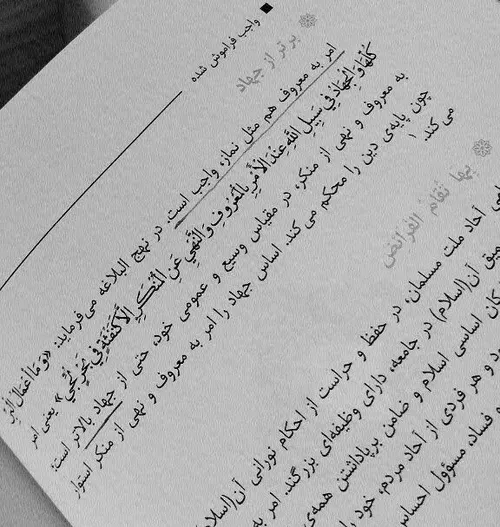 واجب فراموش شده
برتر از جهاد
امر به معروف هم مثل نماز، واجب است. در نهج البلاغه می‌فرماید: «وَ مَا أعمَالُ البِرِّ
كُلُّهَا وَ الجِهَادُ فِي سَبِيلِ اللهِ عِندَ الأمرِ بِالمَعرُوفِ وَ النَّهيِ عَنِ المُنكَرِ إلّا كَنَفثَةٍ فِي بَحرٍ لُجِّيٍّ» یعنی امر
به معروف و نهی از منکر، در مقیاس وسیع و عمومی خود، حتی از جهاد بالاتر است؛
چون پایه‌ی دین را محکم می کند. اساس جهاد را امر به معروف و نهی از منکر استوار
می کند.
بها تقام الفرائض
آحاد ملت مسلمان، در حفظ و حراست از احکام نورانی آن(اسلام
آن(اسلام) در جامعه، دارای وظیفه‌ای بزرگند. امر به
اساسی اسلام و ضامن برپاداشتن همه‌ی
و هر فردی از آحاد مردم، خود را
و فساد، مسؤول احساس